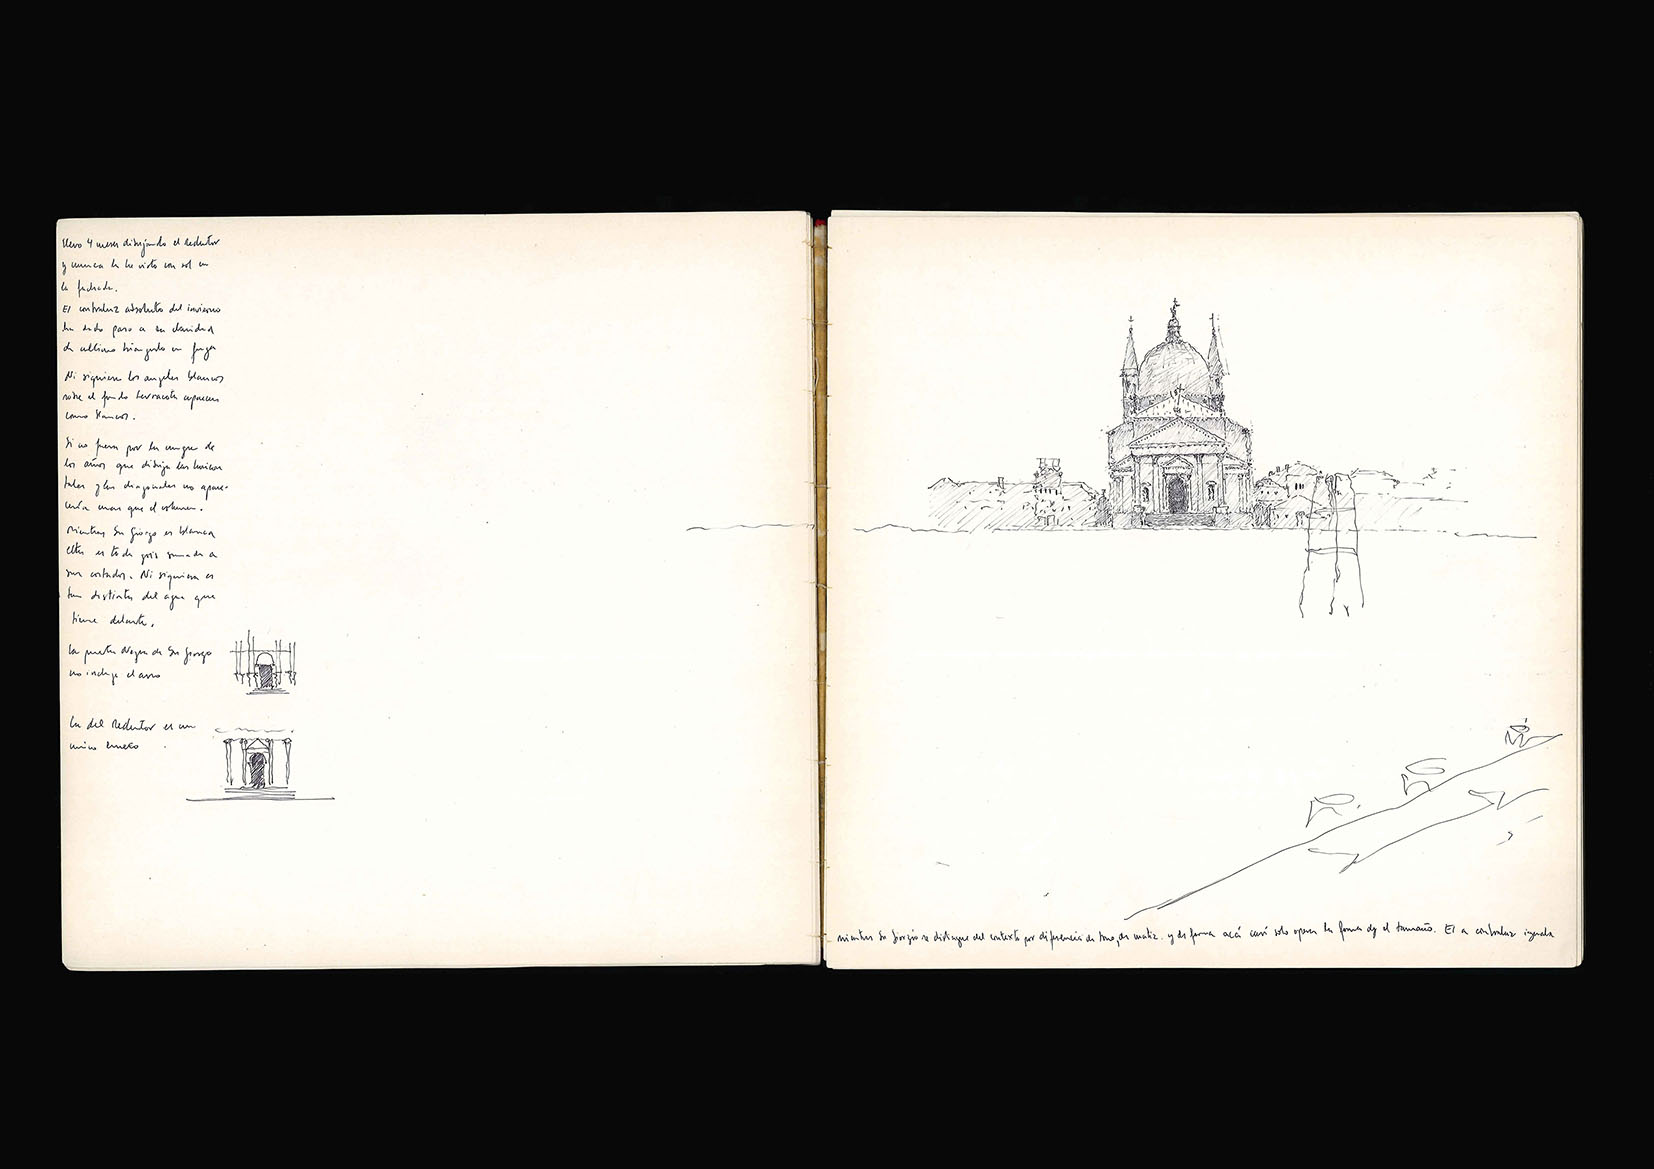 llevo 4 meses dibujando el Redentor
y nunca lo he visto con sol en
la fachada.
El contraluz absoluto del invierno
ha dado paso a su claridad
de
Ni siquiera los angeles blancos
sobre el fondo terracota aparecen
como blancos.
Si no fuera por la mugre de
los años que dibuja las horizon
tales y las diagonales no apare-
cería mas que el volumen.
Mientras Sn Giorgio es blanca
esta es toda gris sumada a
sus costados. Ni siquiera es
tan distinta del agua que
tiene delante.
La puerta negra de Sn Giorgio
no incluye el arco
La del Redentor es un
unico hueco
mientras Sn Giorgio se distingue del contexto por diferencia de tono, de matiz. y de forma acá casi solo opera la forma y el tamaño. El a contraluz iguala